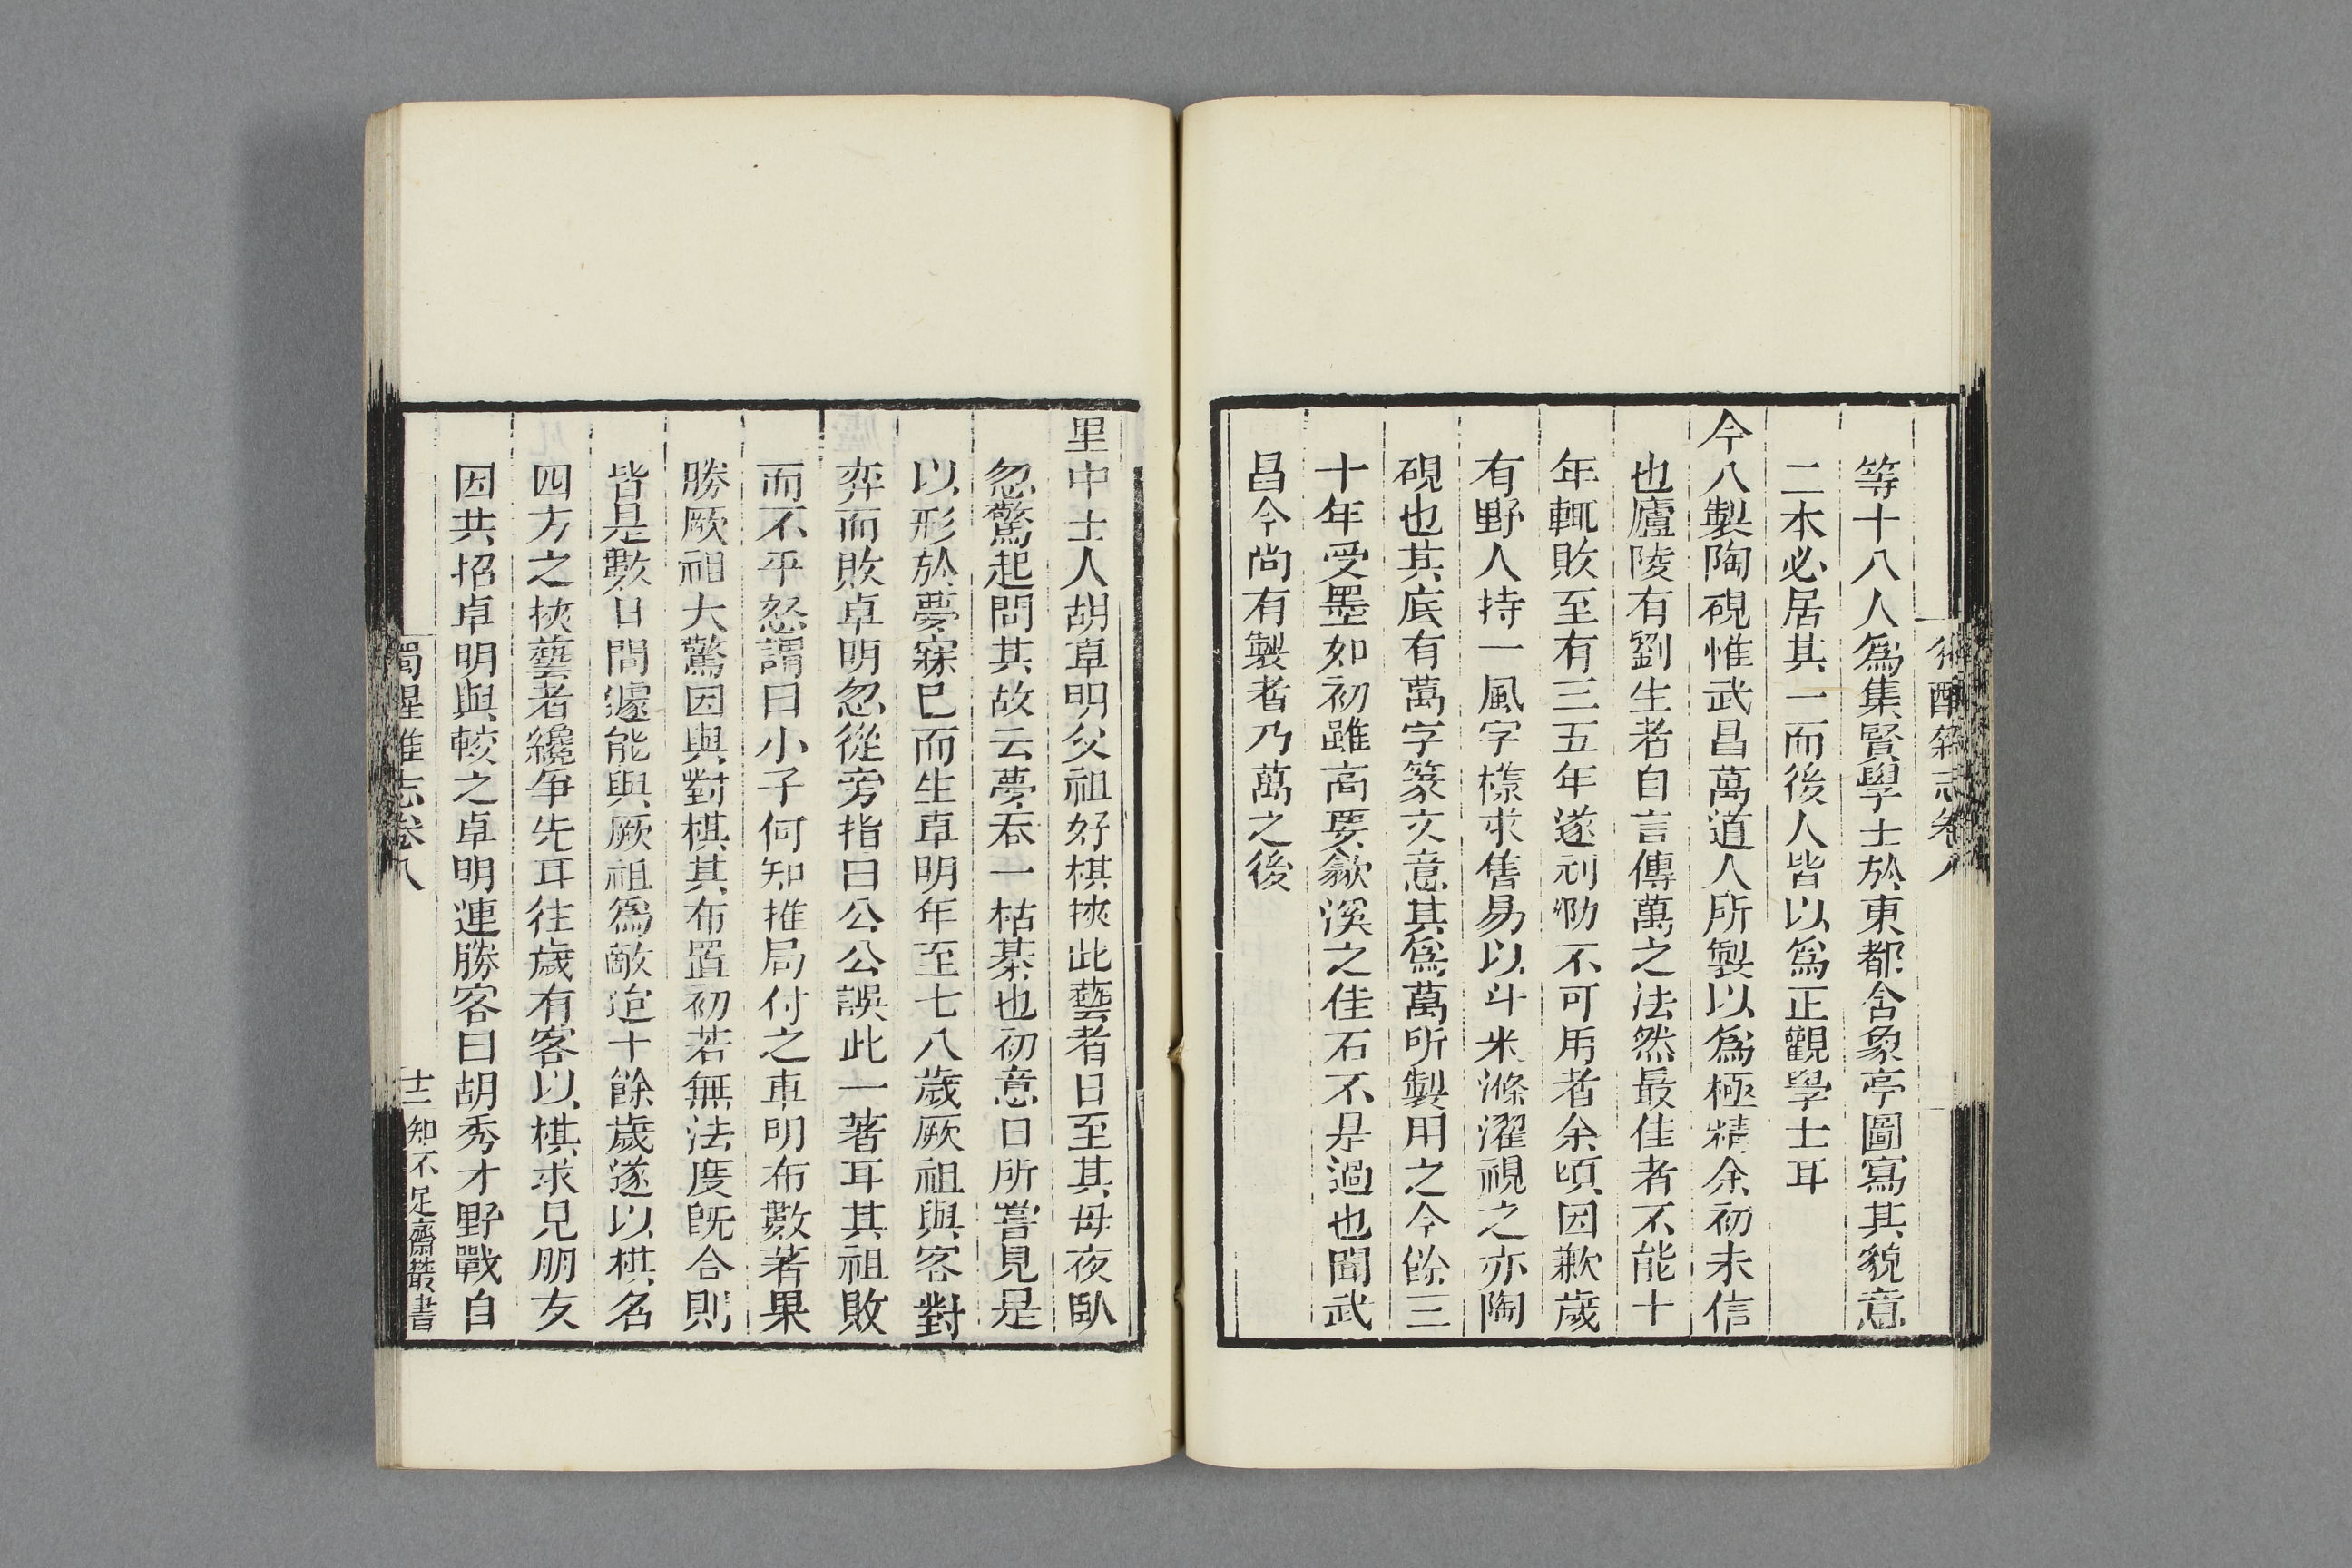 等十八人爲集賢學士於東都含象亭圖寫其貌意
二本必居其一而後人皆以爲正觀學士耳
今人製陶硯惟武昌萬道人所製以爲極精余初未信
也廬陵有劉生者自言傳萬之法然最佳者不能十
年輒敗至有三五年遂刓泐不可用者余頃因歉歲
有野人持一風字樣求售易以斗米滌濯視之亦陶
硯也其底有萬字篆文意其爲萬所製用之今餘三
十年受墨如初雖高要歙溪之佳石不是過也聞武
昌今尚有製者乃萬之後
里中士人胡卓明父祖好棋挾此藝者日至其母夜臥
忽驚起問其故云夢吞一枯棊也初意日所嘗見是
以形於夢寐已而生卓明年至七八歲厥祖與客對
弈而敗卓明忽從旁指曰公公誤此一著耳其祖敗
而不平怒謂曰小子何知推局付之卓明布數著果
勝厥祖大驚因與對棋其布置初若無法度旣合則
皆是數日間遽能與厥祖爲敵迨十餘歲遂以棋名
四方之挾藝者纔爭先耳往歲有客以棋求見朋友
因共招卓明與較之卓明連勝客曰胡秀才野戰自
獨醒雜志卷八
十二 知不足齋叢書